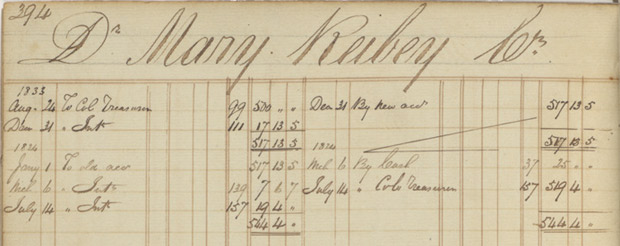 394
Dr Mary Reibey Cr
1833
Aug. 24 To Col Treasurer 99 500 " " Decm 31 By new acct 517 13 5
Decm 31 " Intt 111 17 13 5
517 13 5 517 13 5
1834 1834
Jany 1 To acct 517 13 5 Mch 6 By Cash 37 25 " "
Mch 6 " Intt 139 7 6 7 July 14 " Colo Treasurer 157 519 4 "
July 14 " Intt 157 19 4 "
544 4 " 544 4 "